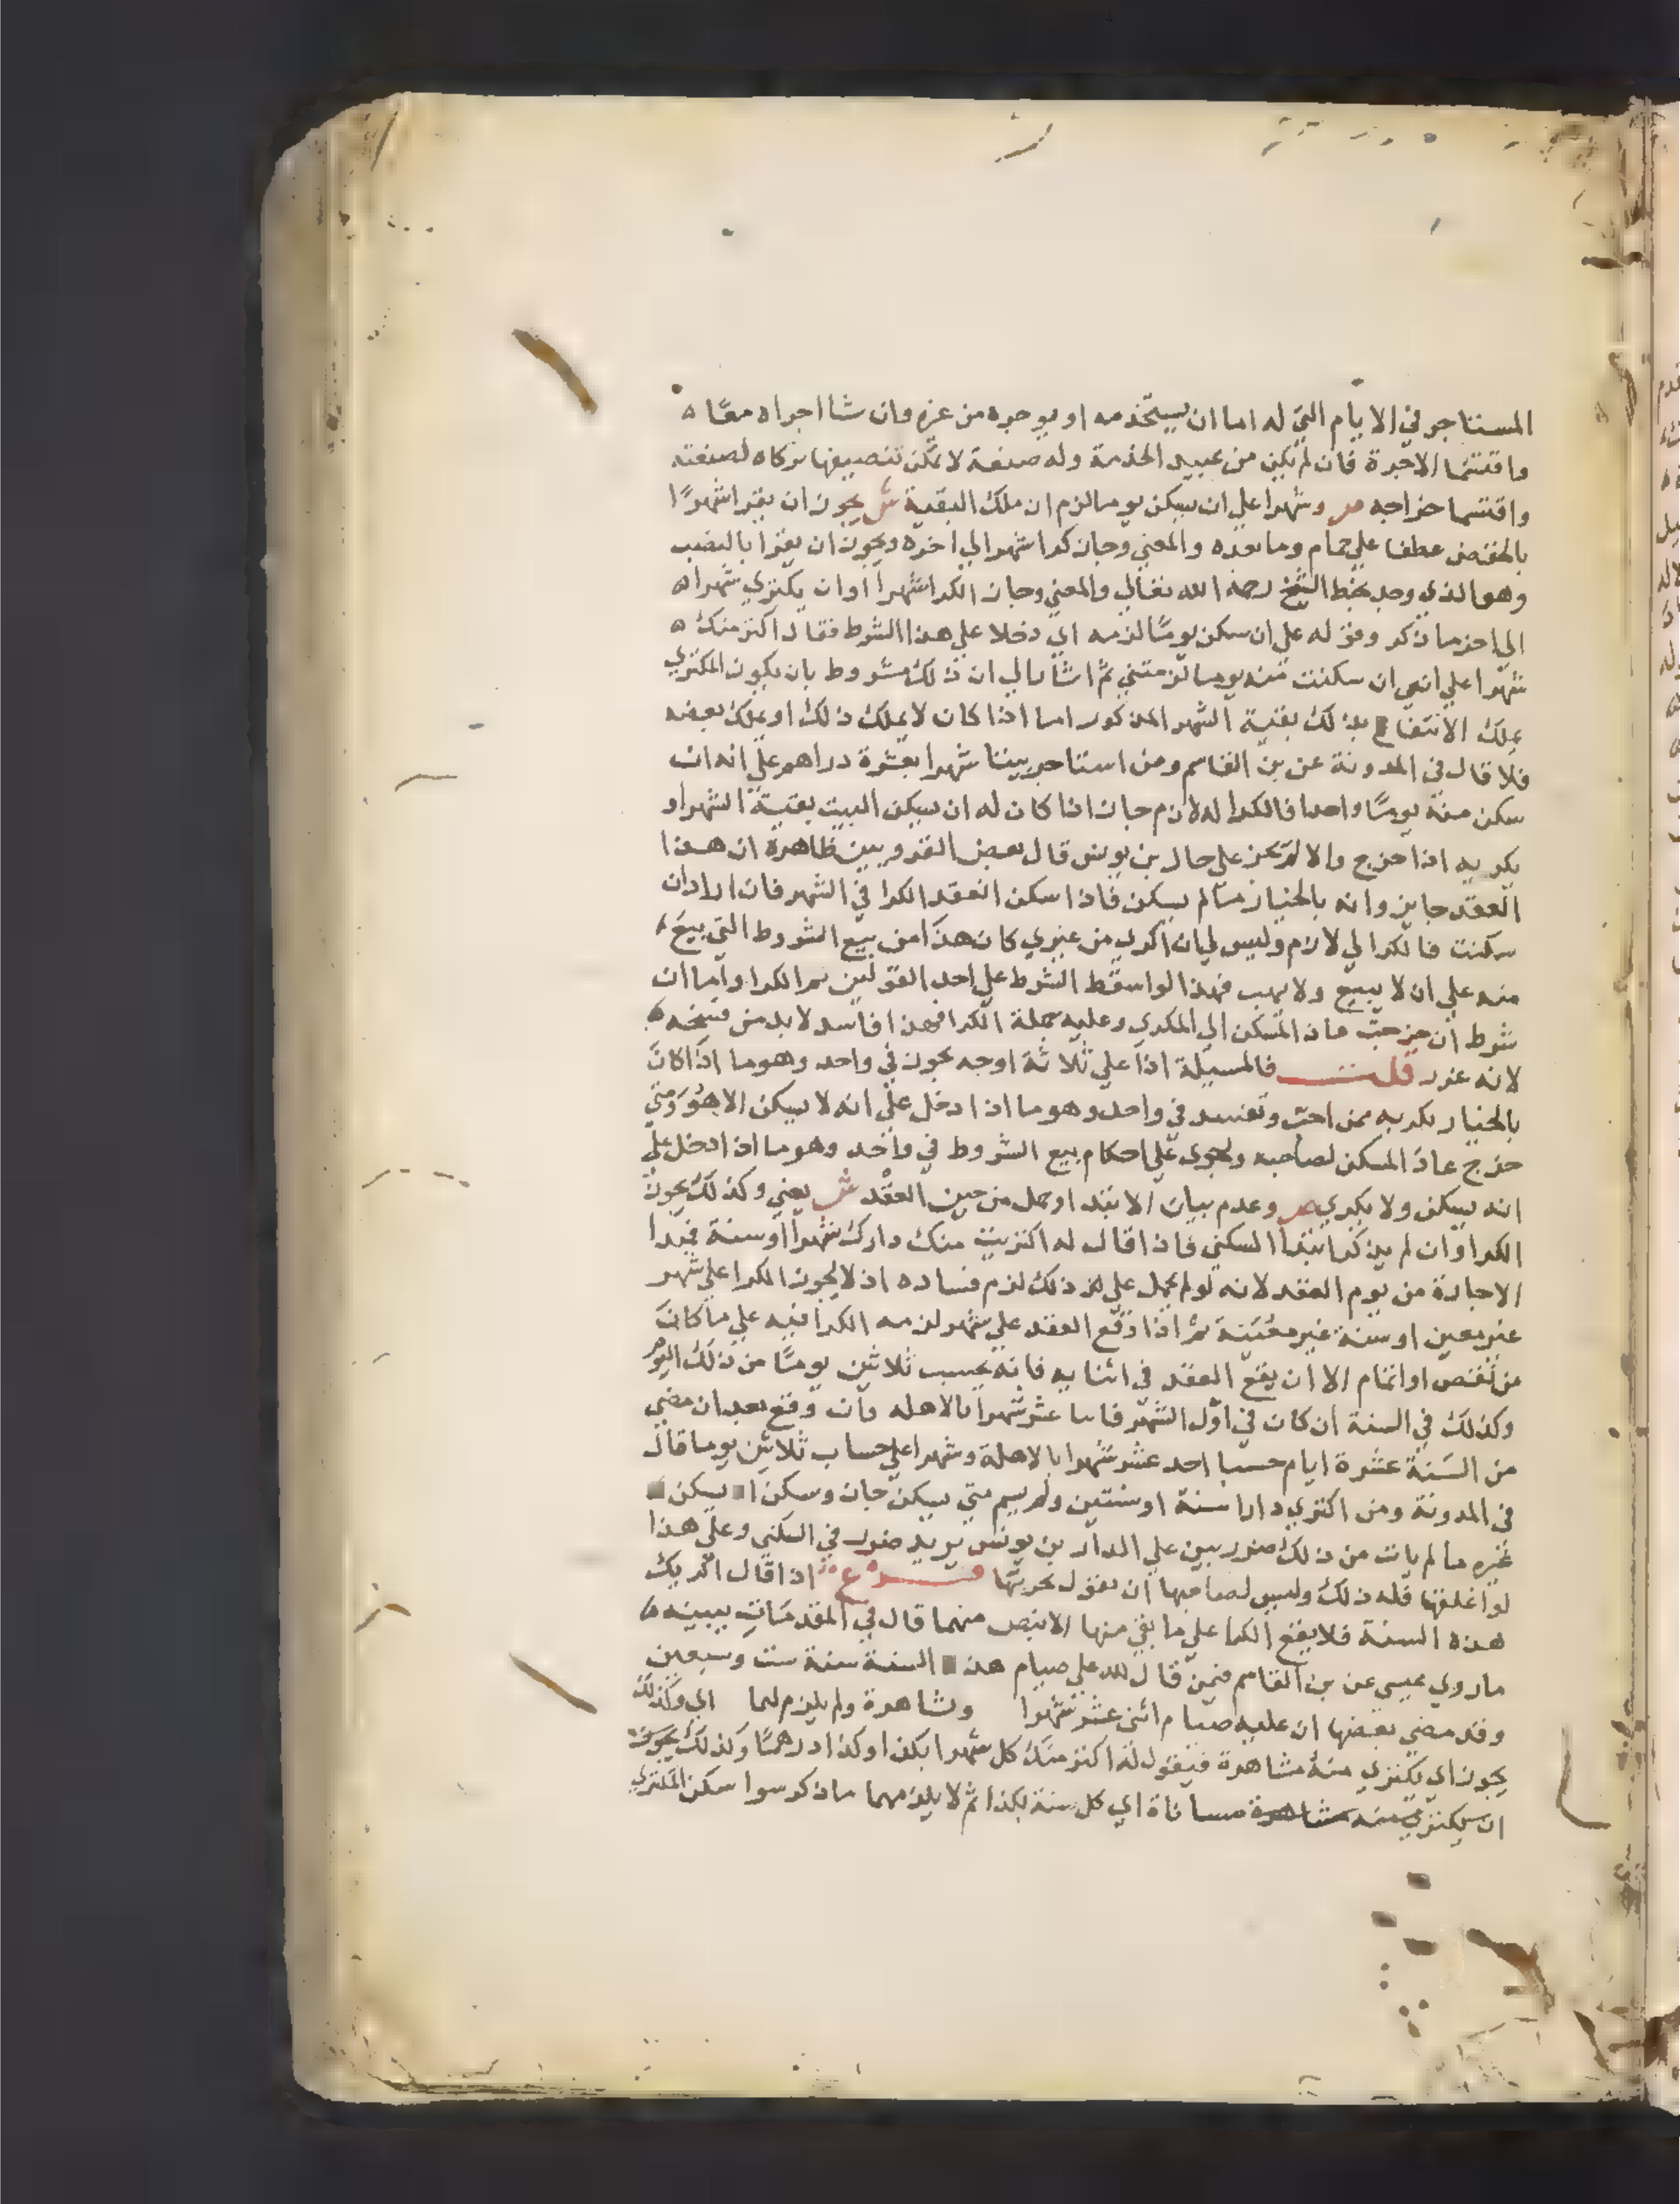 المستاجر في الايام التي له اما ان يستخدمه او يوجره من غيره وان شا اجراه معا ه
واقتسما الاجرة فان لم يكن من عبيد الخدمة وله صنعة لا يمكن تبعيضها تركاه لصنعته
واقتسما خراجه ص وشهرا علي ان سكن يوما لزم ان ملك البقية ش يجوز ان يقرا شهرا
بالخفض عطفا علي حمام وما بعده والمعني وجاز كرا شهر الي اخره ويجوز ان يقرا بالنصب
وهو الذي وجد بخط الشيخ رحمه الله تعالي والمعني وجاز الكرا شهرا او ان يكتري شهرا ه
الي اخر ما ذكر وقوله علي ان سكن يوما لزمه اي دخلا علي هذا الشرط فقال اكتر منك ه
شهرا علي انني ان سكنت منه يوما لزمتني ثم اشار الي ان ذلك مشروط بان يكون المكتري
يملك الانتفاع بذلك بقية الشهر المذكور اما اذا كان لا يملك ذلك او يملك بعضه
فلا قال في المدونة عن بن القاسم ومن استاجر بيتا شهرا بعشرة دراهم علي انه ان
سكن منه يوما واحدا فالكرا له لازم جاز اذا كان له ان يسكن البيت بقية الشهر او
يكريه اذا خرج والا لم يجز علي حال بن يونس قال بعض القرويين ظاهره ان هذا
العقد جايز وانه بالخيار ما لم يسكن فاذا سكن انعقد الكرا في الشهر فان اراد ان
سكنت فالكرا لي لازم وليس لي ان اكري من غيري كان هذا من بيع الشروط التي بيع
منه علي ان لا يبيع ولا يهب فهذا لو اسقط الشرط علي احد القولين تم الكرا واما ان
شرط ان خرجت عاد المسكن الي المكري وعليه جملة الكرا فهذا فاسد لا بد من فسخه
لانه غرر قلت فالمسيلة اذا علي ثلاثة اوجه يجوز في واحد وهو ما اذا كان
بالخيار يكريه ممن احب وتفسد في واحد وهو ما اذا دخل علي انه لا يسكن الا هو ومتي
خرج عاد المسكن لصاحبه ويجري علي احكام بيع الشروط في واحد وهو ما اذا دخل علي
انه يسكن ولا يكري ص وعدم بيان الابتدا وحمل من حين العقد ش يعني وكذلك يجوز
الكرا وان لم يذكر ابتدا السكني فاذا قال له اكتريت منك دارك شهرا او سنة فمبدا
الاجارة من يوم العقد لانه لو لم يحمل علي ذلك لزم فساده اذ لا يجوز الكرا علي شهر
غير معين او سنة غير معينة ثم اذا وقع العقد علي شهر لزمه الكرا فيه علي ما كان
من نقص او اتمام الا ان يقع العقد في اثنايه فانه يحسب ثلاثين يوما من ذلك اليوم
وكذلك في السنة ان كان في اول الشهر فاثنا عشر شهرا بالاهله وان وقع بعد ان مضي
من السنة عشرة ايام حسبا احد عشر شهرا بالاهلة وشهرا علي حساب ثلاثين يوما قال
في المدونة ومن اكتري دارا سنة او سنتين ولم يسم متي يسكن جاز وسكن ا يسكن
غيره ما لم يات من ذلك ضرر بين علي الدار بن يونس يريد ضرر في السكني وعلي هذا
لو اغلقها فله ذلك وليس لصاحبها ان يقول تخربها فرع اذا قال اكريك
هذه السنة فلا يقع الكرا علي ما بقي منها الا بنص منهما قال في المقدمات يبينه
ما روي عيسي عن بن القاسم فيمن قال لله علي صيام هذ السنة سنة ست وسبعين
وقد مضي بعضها ان عليه صيام اثني عشر شهرا ومشاهرة ولم يلزم لهما اي وكذلك
يجوز اي يكتري منه مشاهرة فيقول له اكتر منك كل شهر ا بكذا وكذا درهما وكذلك يجوز
ان يكتري منه مشاهرة مساناة اي كل سنة بكذا ثم لا يلزمهما ما ذكر سوا سكن المكتري